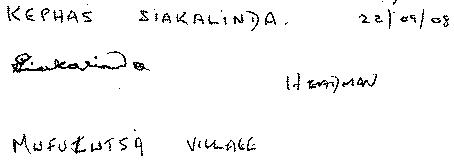 KEPHAS SIAKALINDA. 22/09/08
Siakalinda
HEADMAN
VILLAGE